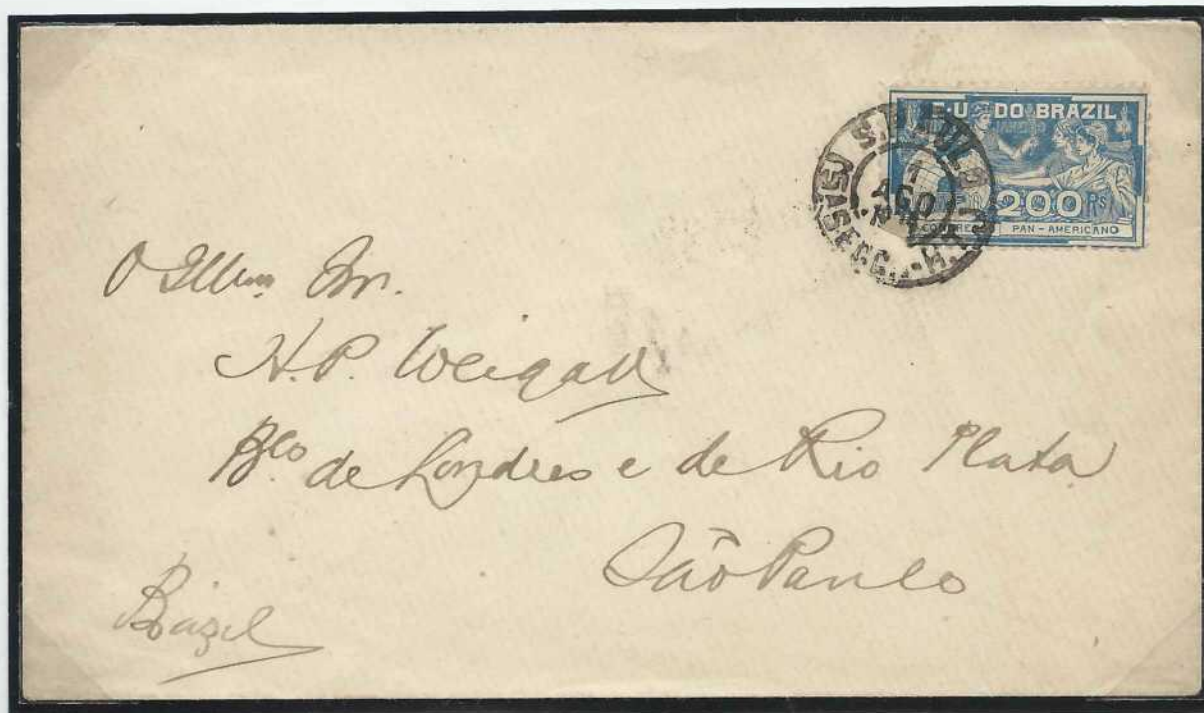 E·U DO BRAZIL
200 Rs
PAN-AMERICANO
S. PAULO
1
AGO
O Illm. Snr.
H.P. Weigall
Bco de Londres e de Rio Plata
São Paulo
Brazil